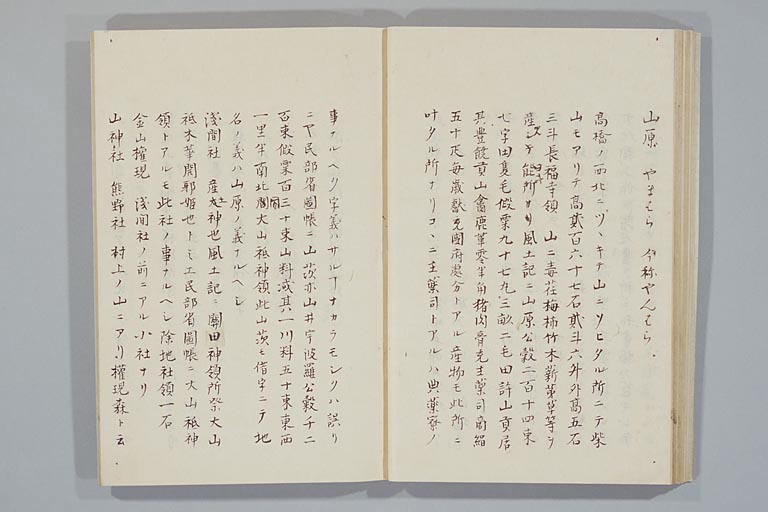 山原 やまはら 今称やんはら、
高橋ノ西北ニツヽキテ山ニソヒタル所ニテ柴
山モアリテ高貳百六十七石貳斗六升外高五石
三斗長福寺領 山ニ毒荏梅柿竹木薪茅草等ヲ
産シテ能所ナリ風土記ニ山原公穀二百十四束
七字田夏毛假粟九十七丸三畝二毛田許山貢居
其豊饒貢山禽鹿革零羊角猪肉膏充主薬司商絹
五十疋毎歳獻充國府處分トアル産物モ此所ニ
叶タル所ナリコヽニ主薬司トアルハ典薬寮ノ
事ナルヘク字義ハサルヿナカラモシクハ誤リ
ニヤ民部省圖帳ニ山茨亦山井宇波羅公穀千二
百束假粟百三十束山料或其一川料五十束東西
一里半南北間大山祗神領此山茨モ借字ニテ地
名ノ義ハ山原ノ義ナルヘシ
浅間社 産土神也風土記ニ關田神領所祭大山
祗木華開耶姫也トミエ民部省圖帳ニ大山祗神
領トアルモ此社ノ事ナルヘシ除地社領一石
金山權現 浅间社ノ前ニアル小社ナリ
山神社 熊野社 村上ノ山ニアリ權現森ト云